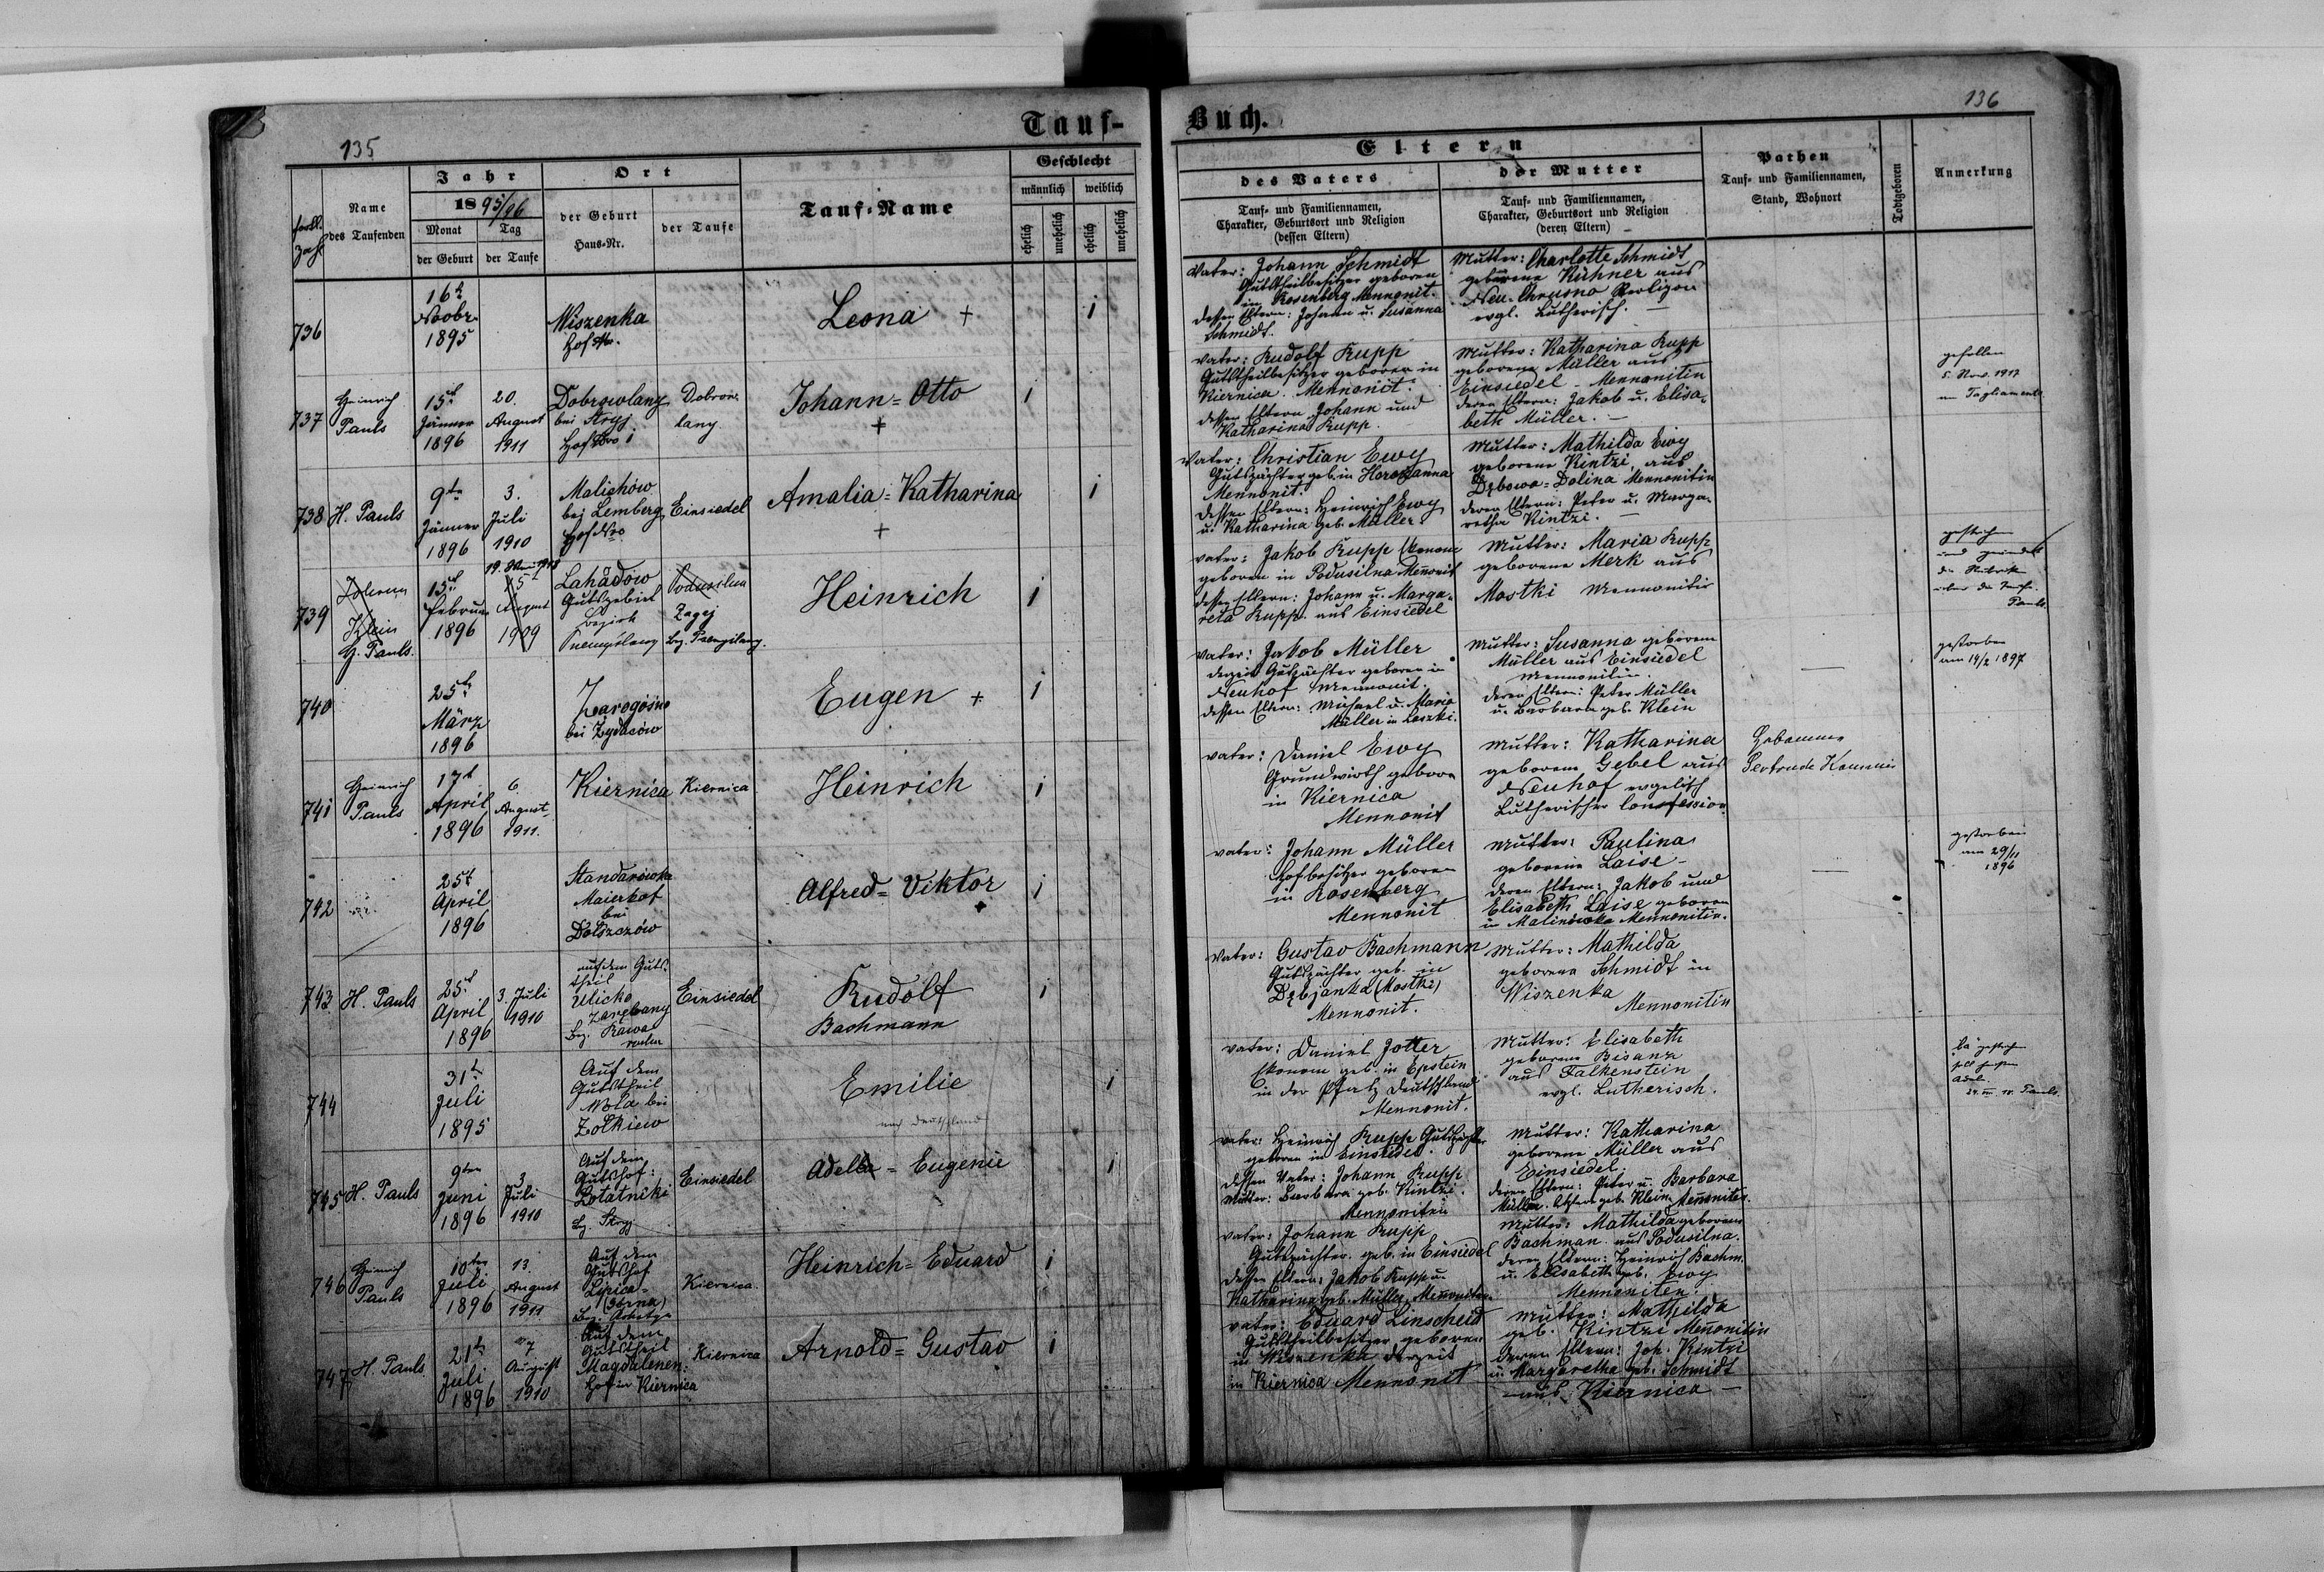 135
Tauf-
Jahr
1895/96
Name
des Taufenden
Monat
Tag
der Geburt
der Taufe
Ort
der Geburt
Haus-Nr.
der Taufe
Tauf-Name
Geschlecht
männlich
weiblich
ehelich
unehelich
ehelich
unehelich
Buch.
136
Eltern
des Vaters
Tauf- und Familiennamen,
Charakter, Geburtsort und Religion
(dessen Eltern)
der Mutter
Tauf- und Familiennamen,
Charakter, Geburtsort und Religion
(deren Eltern)
Pathen
Tauf- und Familiennamen,
Stand, Wohnort
Todtgeboren
Anmerkung
736
Novbr.
1895
Wiszenka
Leona +
1
Vater: Johann Schmidt
Gutstheilbesitzer geboren
in Rosenberg Mennonit.
dessen Eltern: Johann u. Susanna
Schmidt.
Mutter: Charlotte Schmidt
geborene Kühner aus
Neu-Chrusno Religion
evgl. Lutherisch.
737
Heinrich
Pauls
15t
Jänner
1896
20.
August
1911
Dobrowlany
bei Stryj
Dobrow-
lany
Johann=Otto
+
1
Vater: Rudolf Rupp
Gutstheilbesitzer geboren in
Kiernica. Mennonit.
dessen Eltern Johann und
Katharina Rupp.
Mutter: Katharina Rupp
geborene Müller aus
Einsiedel - Mennonitin
deren Eltern: Jakob u. Elisa-
beth Müller.
gefallen
5. Nov. 1917
am Tagliamento
738
H. Pauls
9te
Jänner
1896
3.
Juli
1910
Malichow
bei Lemberg
Einsiedel
Amalia=Katharina
+
1
Vater: Christian Ewy
Gutspächter geb. in Horozanna
Mennonit.
dessen Eltern: Heinrich Ewy
u. Katharina geb. Müller
Mutter: Mathilda Ewy
geborene Kintzi, aus
Dębowa=Dolina Mennonitin
deren Eltern: Peter u. Marga-
retha Kintzi.
739
Johann
Klein
H. Pauls.
15t
Februar
1896
15
August
1909
Lahadów
Gutsgebiet
Bezirk
Podusilna
Zagej
Heinrich
1
Vater: Jakob Rupp Ekonom
geboren in Podusilna Mennonit
dessen Eltern: Johann u. Marga-
reta Rupp aus Einsiedel
Mutter: Maria Rupp
geborene Merk aus
Mostki Mennonitin
Pauls.
740
25t
März
1896
bei Zydaców
Eugen +
1
Vater: Jakob Müller
derzeit Gutspächter geboren in
Neuhof Mennonit.
dessen Eltern: Michael u. Maria
Müller in Laszki.
Mutter: Susanna geborene
Müller aus Einsiedel
Mennonitin.
deren Eltern: Peter Müller
u. Barbara geb. Klein
gestorben
am 14/2 1897
741
Heinrich
Pauls
17t
April
1896
6.
August
1911.
Kiernica
Kiernica
Heinrich
1
Vater: Daniel Ewy
Grundwirth geboren
in Kiernica
Mennonit
Mutter: Katharina
geborene Gebel aus
Neuhof evgelisch
Lutherischer Confession
Hebamme
742
25t
April
1896
Standarówka
Maierhof
bei
Alfred=Viktor
1
Vater: Johann Müller
Hofbesitzer geboren
in Rosenberg
Mennonit
Mutter: Paulina
geborene Laise -
deren Eltern: Jakob und
Elisabeth Laise geboren
in Malinówka Mennonitin.
gestorben
am 29/11
1896
743
H. Pauls
25t
April
1896
3. Juli
1910
auf dem Guts-
theil
Ulicko
Zarębany
Bez. Rawa
Einsiedel
Rudolf
Bachmann
1
Vater: Gustav Bachmann
Gutspächter geb. in
Dębjanka (Mostki)
Mennonit.
Mutter: Mathilda
geborene Schmidt in
Wiszenka
Mennonitin
744
31t
Juli
1895
Auf dem
Gutstheil
Wola bei
Zolkiew
Emilie
nach Deutschland
1
Vater: Daniel Jotter
Ekonom geb. in Epstein
in der Pfalz Deutschland
Mennonit.
Mutter: Elisabeth
geborene Bisanz
aus Falkenstein
evgl. Lutherisch.
745
H. Pauls
9ten
Juni
1896
3
Juli
1910
Auf dem
Gutshof:
Lotatniki
Bz. Stryj
Einsiedel
Adella=Eugenie
1
Vater: Heinrich Rupp Gutspächter
geboren in Einsiedel.
dessen Vater: Johann Rupp
Mutter: Barbara geb. Kintzi.
Mennoniten
Mutter: Katharina
geborene Müller aus
Einsiedel.
deren Eltern: Peter u. Barbara
"la" gestrichen
soll heißen
Adele.
746
Heinrich
Pauls
10ten
Juli
1896
13.
August
1911
Auf dem
Gutshof
Lipica-
(Górna)
Kiernica.
Heinrich=Eduard
1
Vater: Johann Rupp
Gutspächter geb. in Einsiedel
dessen Eltern: Jakob Rupp u.
Katharina geb. Müller Mennoniten.
Mutter: Mathilda geborene
Bachman aus Podusilna.
deren Eltern: Heinrich Bachm.
u. Elisabeth geb. Ewy
Mennoniten.
747
H. Pauls
21t
Juli
1896
7
August
1910
Auf dem
Gutstheil
Magdalenen-
hof in Kiernica
Kiernica
Arnold=Gustav
1
Vater: Eduard Linscheid
Gutstheilbesitzer geboren
in Wiszenka derzeit
in Kiernica Mennonit
Mutter: Mathilda
geb. Kintzi Mennonitin
deren Eltern: Joh. Kintzi
u. Margaretha geb. Schmidt
aus Kiernica